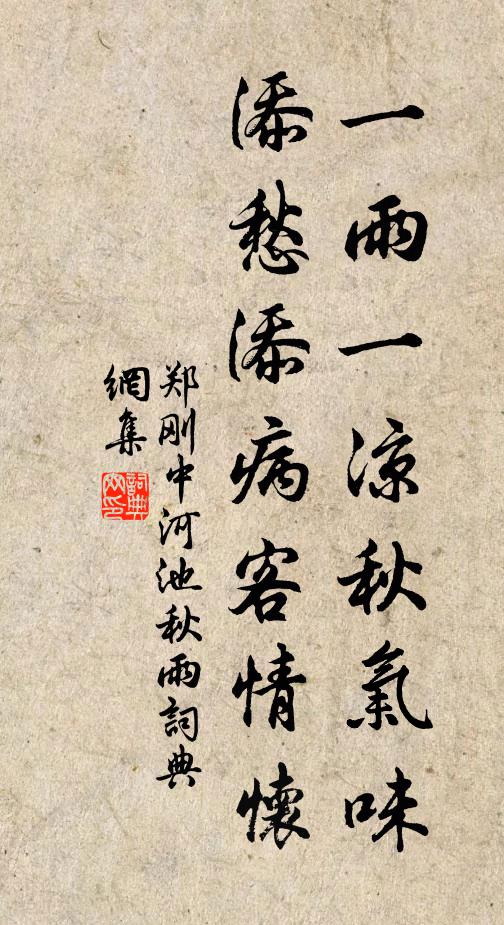 一雨一凉秋氣味
添愁添病客情懷
郑刚中河池秋雨詞典
網集
詞典
网印